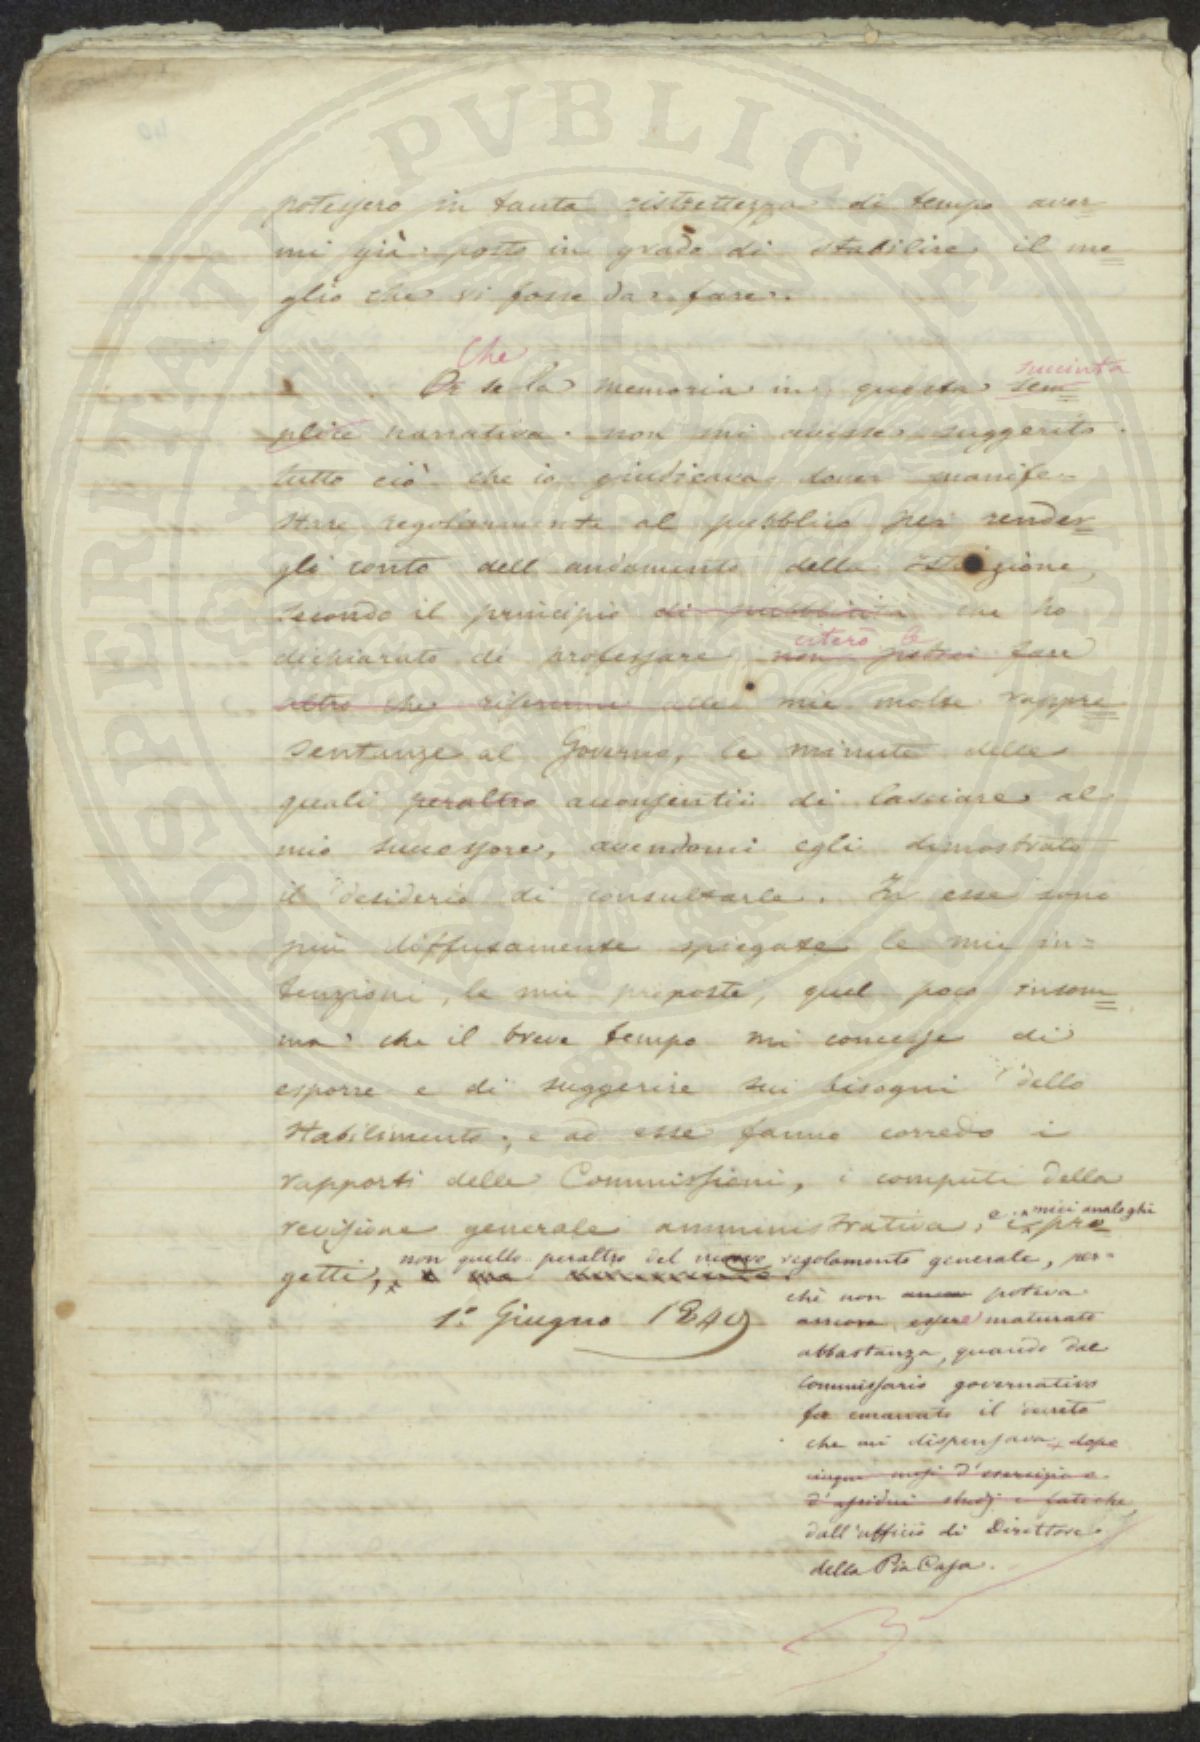 potessero in tanta ristrettezza di tempo aver
mi già posto in grado di stabilire il me=
glio che vi fosse da fare.
Che
Or se la memoria in questa sem= succinta
plice narrativa non mi avesse suggerito
tutto ciò che io giudicava dover manife-
stare regolarmente al pubblico per render=
gli conto dell'andamento della Istituzione,
secondo il principio di pubblicità che ho
citerò le
dichiarato di professare non potrei fare
altro che riferirmi alle mie molte rappre=
sentanze al Governo, le minute delle
quali peraltro acconsentii di lasciare al
mio successore, avendomi egli dimostrato
il desiderio di consultarle. In esse sono
più diffusamente spiegate le mie in=
tenzioni, le mie proposte, quel poco insom=
ma che il breve tempo mi concesse di
esporre e di suggerire sui bisogni dello
Stabilimento; e ad esse fanno corredo i
rapporti delle Commissioni, i computi della
revisione generale amministrativa, e i miei analoghi pro=
getti, non quello peraltro del nuovo regolamento generale, per=
chè non poteva
1º. Giugno 1849
ancora essere maturato
abbastanza, quando dal
Commissario governativo
fu emanato il decreto
che mi dispensava, dopo
cinque mesi d'esercizio e
d'assidui studj e fatiche,
dall'ufficio di Direttore
della Pia Casa.
SOSPERITATI PVBLICAE AVGENDAE